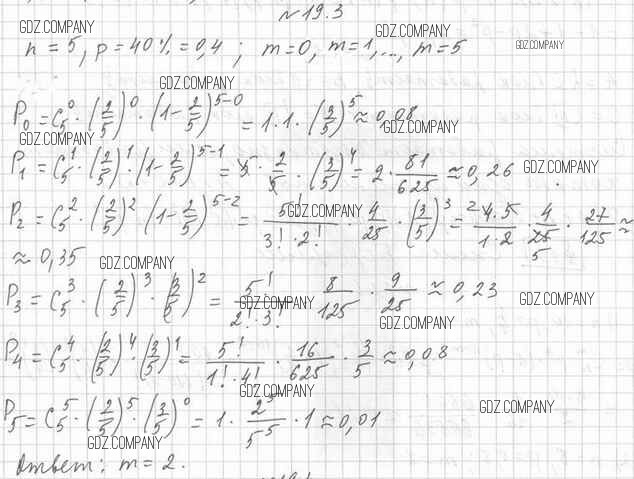 № 19.3
GDZ.COMPANY GDZ.COMPANY
n = 5, p = 40% = 0,4; m=0, m=1,..., m=5 GDZ.COMPANY
GDZ.COMPANY
P₀ = C₅⁰ · (2/5)⁰ · (1-2/5)⁵⁻⁰ = 1·1·(3/5)⁵ ≈ 0,08
GDZ.COMPANY GDZ.COMPANY
P₁ = C₅¹ · (2/5)¹ · (1-2/5)⁵⁻¹ = 5 · 2/5 · (3/5)⁴ = 2 · 81/625 ≈ 0,26 GDZ.COMPANY
GDZ.COMPANY
P₂ = C₅² · (2/5)² (1-2/5)⁵⁻² = 5!/(3!·2!) · 4/25 · (3/5)³ = ² 4·5/(1·2) · 4/25 5 · 27/125 ≈
≈ 0,35
GDZ.COMPANY
P₃ = C₅³ · (2/5)³ · (3/5)² = 5!/(2!·3!) 8/125 · 9/25 ≈ 0,23
GDZ.COMPANY GDZ.COMPANY
GDZ.COMPANY
P₄ = C₅⁴ · (2/5)⁴ · (3/5)¹ = 5!/(1!·4!) · 16/625 · 3/5 ≈ 0,08
GDZ.COMPANY GDZ.COMPANY
P₅ = C₅⁵ · (2/5)⁵ · (3/5)⁰ = 1 · 2⁵/5⁵ · 1 ≈ 0,01
GDZ.COMPANY
Ответ: m = 2.